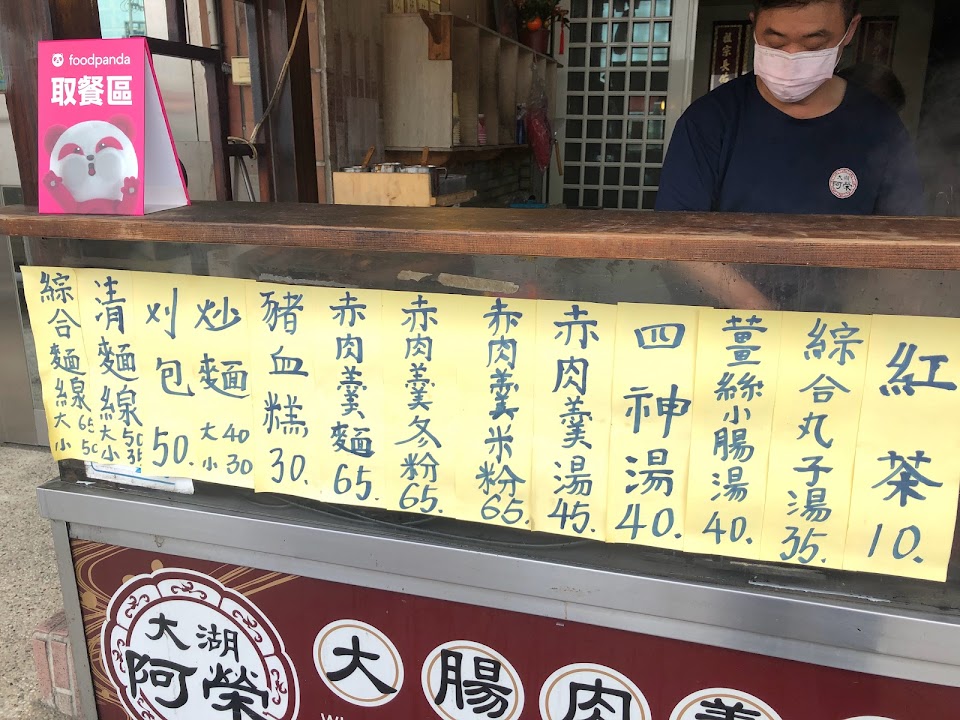 foodpanda
取餐區
大湖
阿榮
綜合麵線大65
小50
清麵線大50
小35
刈包50.
炒麵大40
小30
豬血糕30.
赤肉羹麵65.
赤肉羹冬粉65.
赤肉羹米粉65.
赤肉羹湯45.
四神湯40.
薑絲小腸湯40.
綜合丸子湯35.
紅茶10.
大湖
阿榮
大腸肉羹